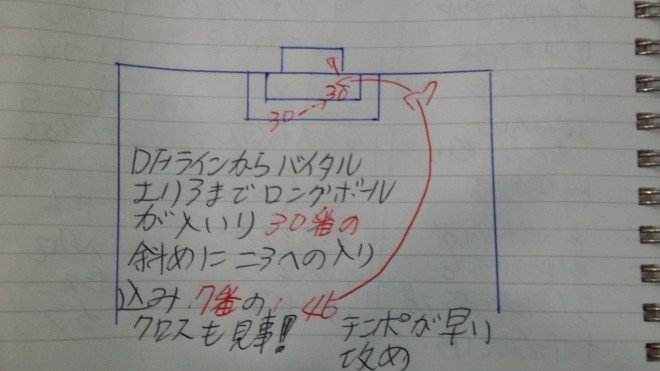 30
30
7
DFラインからバイタル
エリアまでロングボール
が入いり30番の
斜めにニアへの入り
込み.7番の 46
クロスも見事!! テンポが早い
攻め